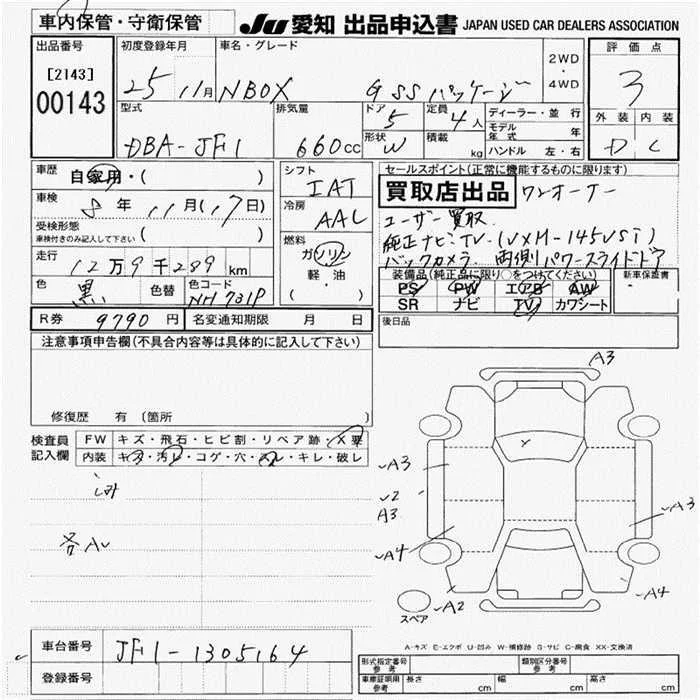 車内保管・守衛保管
JU愛知 出品申込書 JAPAN USED CAR DEALERS ASSOCIATION
出品番号
[2143]
00143
初度登録年月
25 11月
車名・グレード
NBOX G SSパッケージ
2WD
・
4WD
評価点
3
外装 内装
D C
型式
DBA-JF1
排気量
660cc
ドア
5
形状
W
定員
4人
積載
kg
ディーラー・並行
モデル年式 年
ハンドル 左・右
車歴 自家用・( )
車検 8年 11月(17日)
受検形態
車検付きのみ記入して下さい ( )
走行 12万9千289km
色 黒 色替 色コード NH731P
シフト
IAT
冷房
AAC
燃料
ガソリン
軽油
( ・ )
セールスポイント(正常に機能するものに限ります)
買取店出品 ワンオーナー
ユーザー買取
純正ナビ・TV・(VXM-145VSi)
バックカメラ 両側パワースライドドア
装備品(純正品に限り○をつけてください)
PS PW エアB AW
SR ナビ TV カワシート
新車保証書
後日品
R券 9790円 名変通知期限 月 日
注意事項申告欄(不具合内容等は具体的に記入して下さい)
修復歴 有(箇所 )
検査員
記入欄
FW キズ・飛石・ヒビ割・リペア跡・X要
内装 キズ・汚レ・コゲ・穴・スレ・キレ・破レ
A3
A3
U2
A3
A4
A2
A3
A4
Y
スペア
A-キズ E-エクボ U-凹み W-補修跡 S-サビ C-腐食 XX-交換済
車台番号 JF1-1305164
登録番号
形式指定番号
参考
類別区分番号
参考
車庫証明用
参考
長さ cm 幅 cm 高さ cm